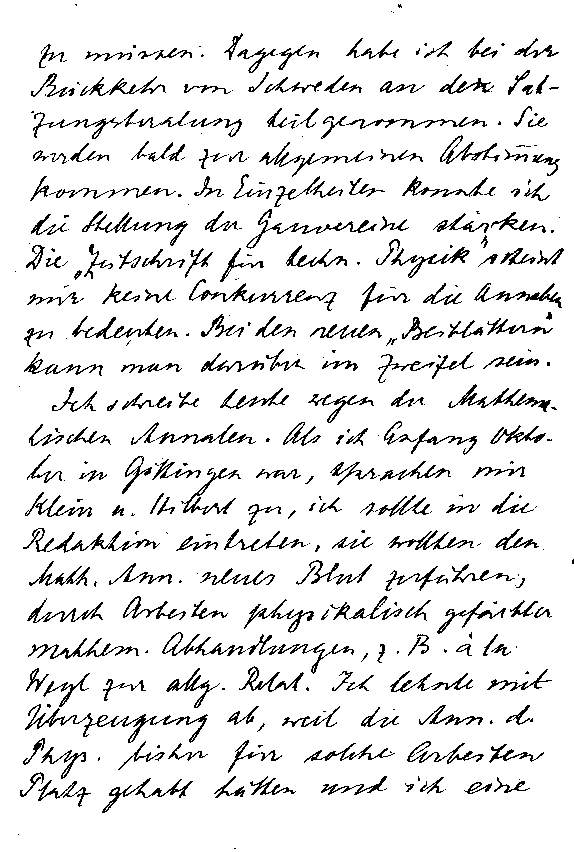 zu müssen. Dagegen habe ich bei der
Rückkehr von Schweden an den Sat-
zungsberatung teilgenommen. Sie
werden bald zur allgemeinen Abstimmung
kommen. In Einzelheiten konnte ich
die Stellung der Gauvereine stärken.
Die „Zeitschrift für techn. Physik" scheint
mir keine Conkurrenz für die Annalen
zu bedeuten. Bei den neuen „Beiblättern"
kann man darüber im Zweifel sein.
Ich schreibe heute wegen der Mathema-
tischen Annalen. Als ich Anfang Okto-
ber in Göttingen war, sprachen mir
Klein u. Hilbert zu, ich sollte in die
Redaktion eintreten, sie wollten den
Math. Ann. neues Blut zuführen,
durch Arbeiten physikalisch gefärbter
mathem. Abhandlungen, z. B. à la
Weyl zur allg. Relat. Ich lehnte mit
Überzeugung ab, weil die Ann. d.
Phys. bisher für solche Arbeiten
Platz gehabt hätten und ich eine